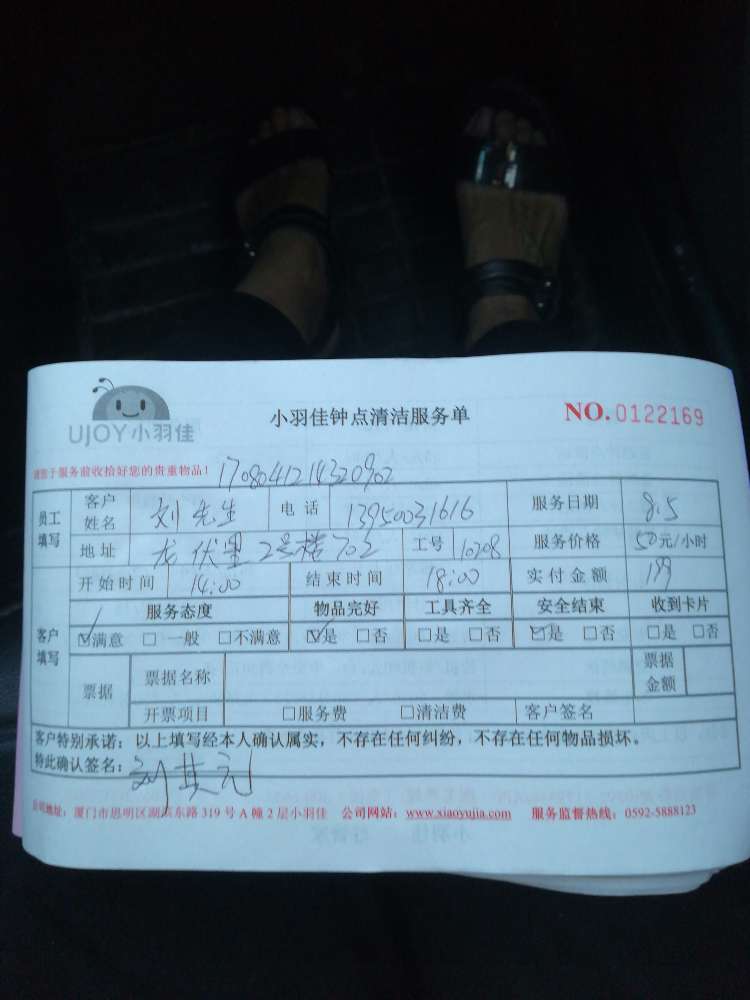 UJOY小羽佳
小羽佳钟点清洁服务单
NO.0122169
请您于服务前收拾好您的贵重物品！ 1708041214320902
员工填写 客户姓名 刘先生 电话 13950031616 服务日期 8.5
地址 龙伏里2号楼702 工号 10208 服务价格 50元/小时
客户填写 开始时间 14:00 结束时间 18:00 实付金额 199
服务态度 物品完好 工具齐全 安全结束 收到卡片
☑满意 □一般 □不满意 ☑是 □否 □是 □否 ☑是 □否 □是 □否
票据 票据名称 票据金额
开票项目 □服务费 □清洁费 客户签名
客户特别承诺：以上填写经本人确认属实，不存在任何纠纷，不存在任何物品损坏。
特此确认签名：刘其元
公司地址：厦门市思明区湖滨东路319号A幢2层小羽佳 公司网站：www.xiaoyujia.com 服务监督热线：0592-5888123